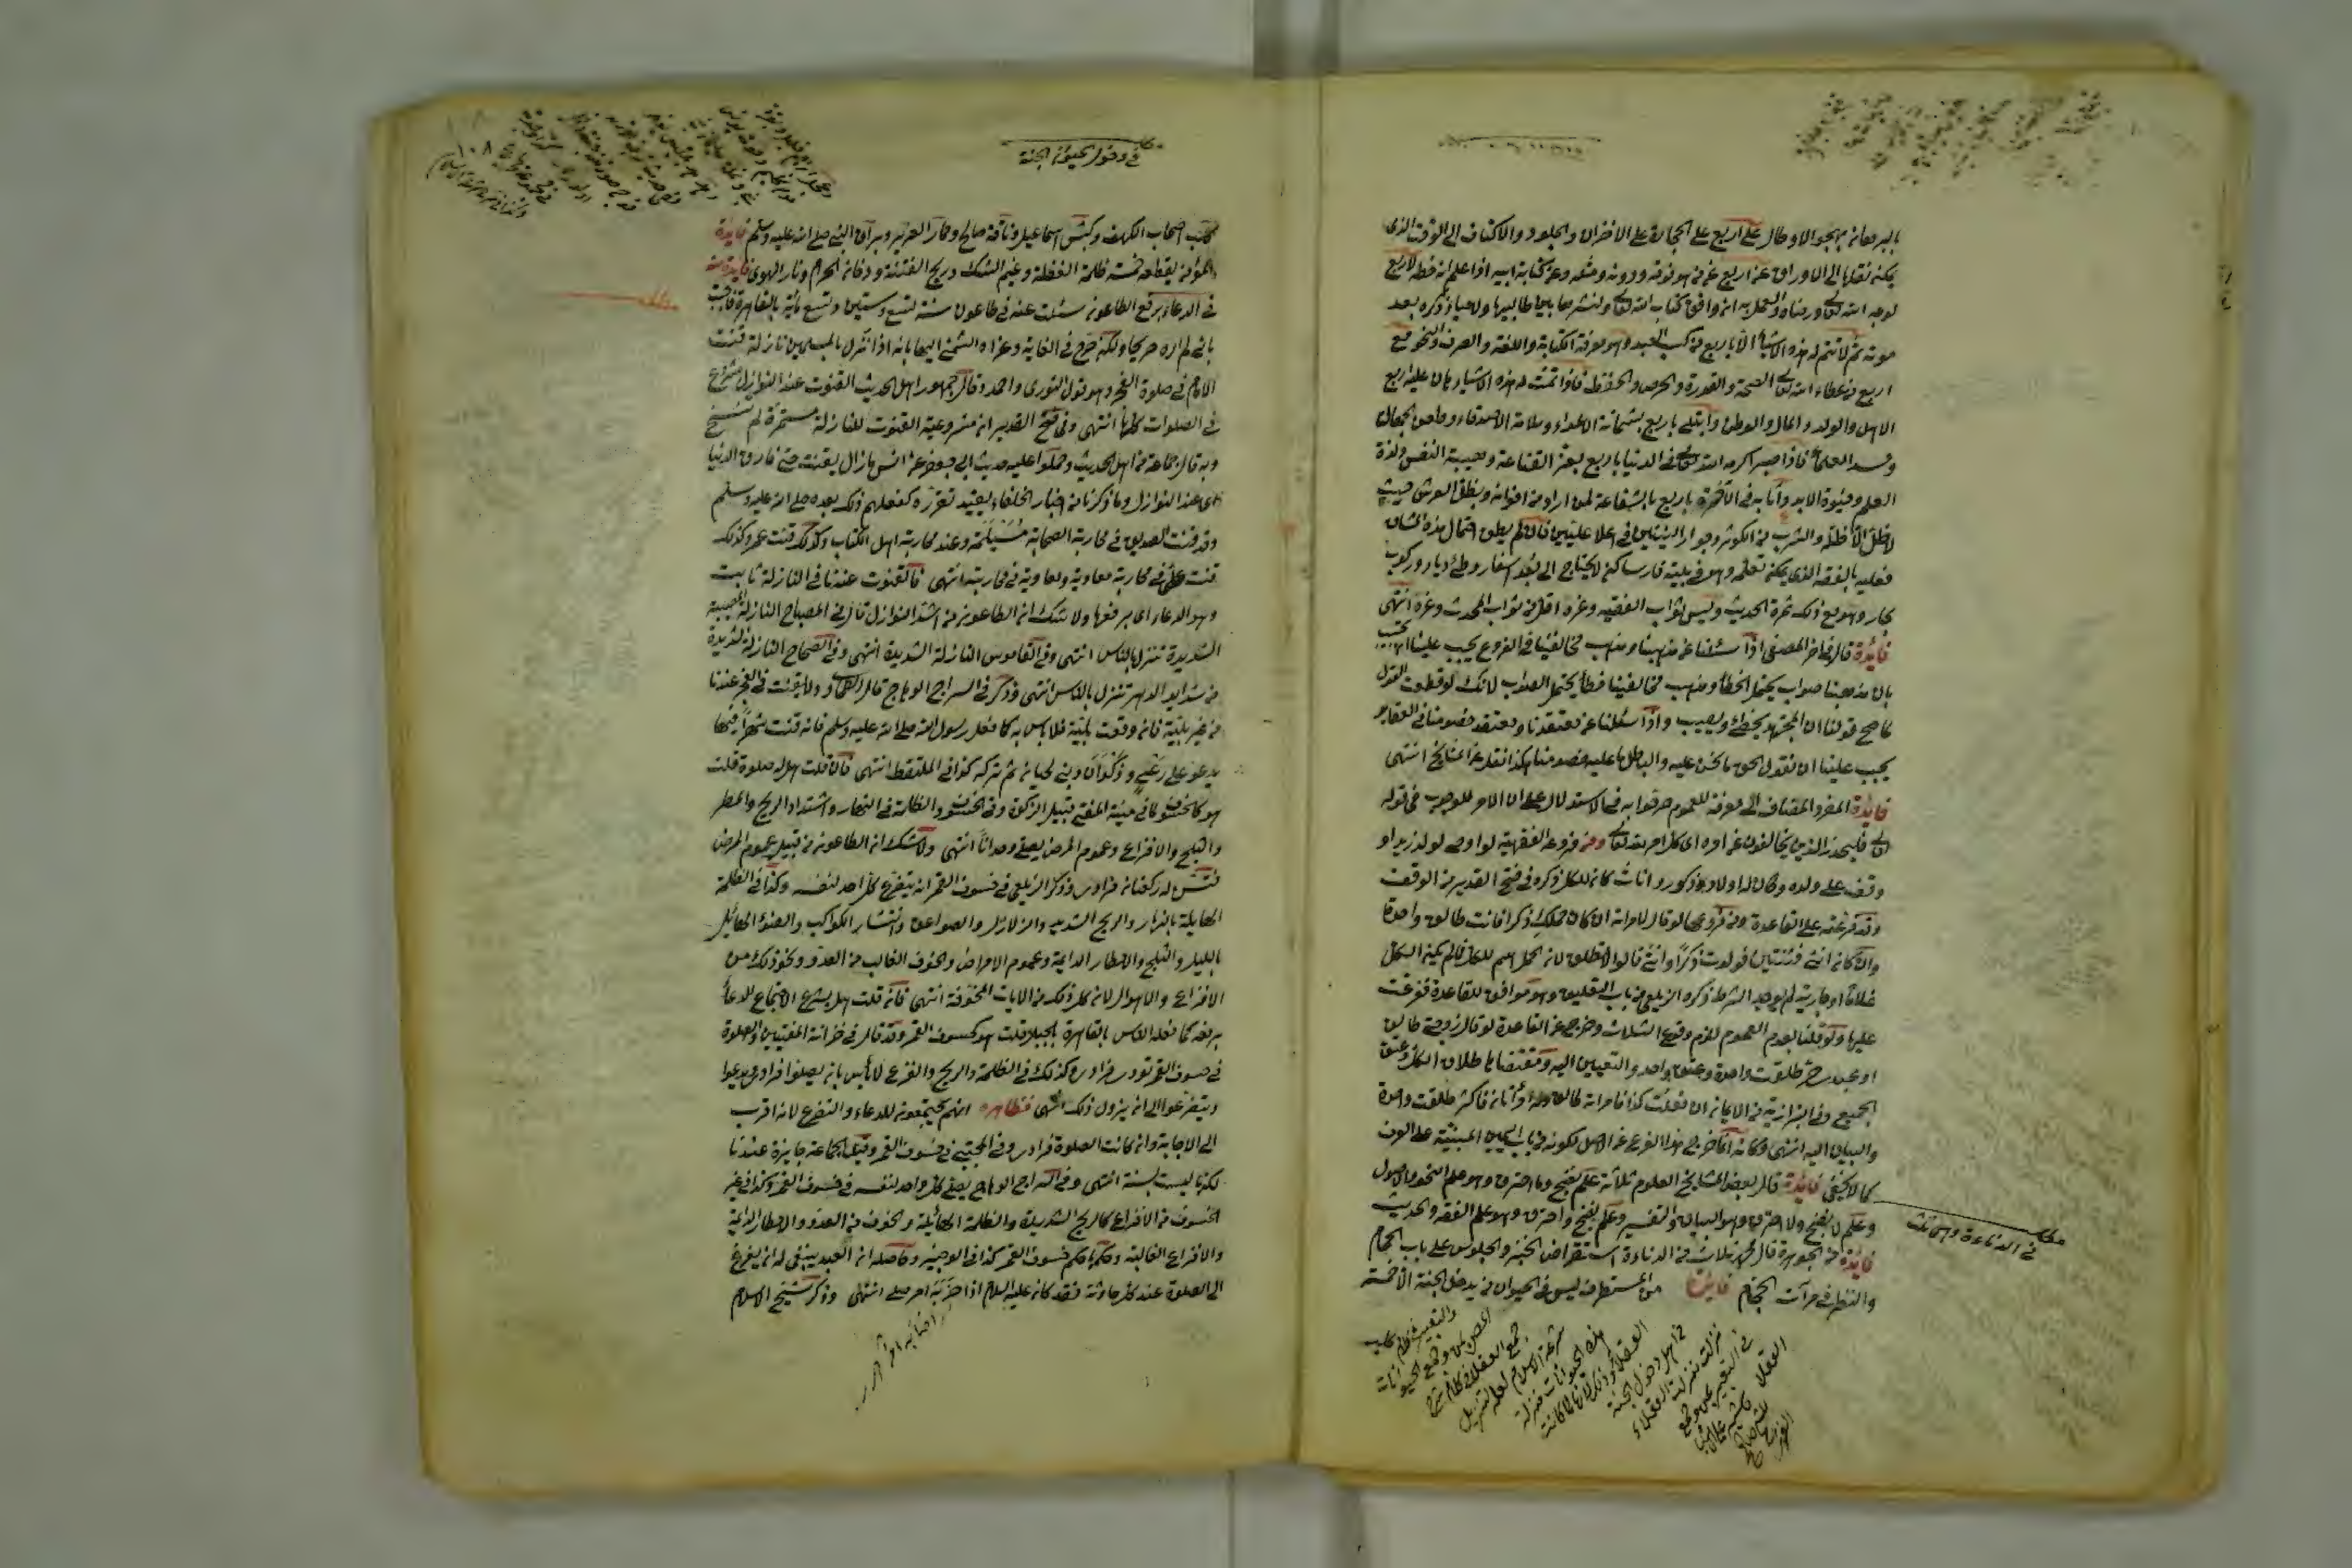 بالبر معانه بهجو الاوطان على اربع على الحجارة على الاخزاف والجلود والاكتاف الى الوقت الذى
يمكنه نقلها الى الاوراق عن اربع عن من هو فوقه ودونه ومثله وعن كتابة ابيه اذا علم انه خطه لاربع
لوجه الله تعالى ورضاه والعمل به ان وافق كتاب الله تعالى ونشرها بين طالبيها ولاحياء ذكره بعد
موته ثم لا تتم له هذه الاشياء الا باربع من كسب العبد وهو معرفة الكتابة واللغة والصرف والنحو مع
اربع من عطاء الله تعالى الصحة والقدرة والحرص والحفظ فاذا تمت له هذه الاشياء هان عليه اربع
الاهل والولد والمال والوطن وابتلى باربع بشماتة الاعداء وملامة الاصدقاء وطعن الجهال
وحسد العلماء فاذا صبر اكرمه الله تعالى فى الدنيا باربع بعز القناعة وهيبة النفس ولذة
العلم وحيوة الابد واثابه فى الآخرة باربع بالشفاعة لمن اراد من اخوانه وبظل العرش حيث
لا ظل الا ظله والشرب من الكوثر وجوار النبيين فى اعلا عليين فان لم يطق احتمال هذه المشاق
فعليه بالفقه الذى يمكنه تعلمه وهو فى بيته قار ساكن لا يحتاج الى بعد اسفار وطى ديار وركوب
بحار وهو مع ذلك ثمرة الحديث وليس ثواب الفقيه وعزه اقل من ثواب المحدث وعزه انتهى
فائدة قال فى اخر المصفى اذا سئلنا عن مذهبنا ومذهب مخالفينا فى الفروع يجب علينا ان نجيب
بان مذهبنا صواب يحتمل الخطأ ومذهب مخالفينا خطأ يحتمل الصواب لانك لو قطعت القول
لما صح قولنا ان المجتهد يخطئ ويصيب واذا سئلنا عن معتقدنا ومعتقد خصومنا فى العقايد
يجب علينا ان نقول الحق ما نحن عليه والباطل ما عليه خصومنا هكذا نقل عن المشايخ انتهى
فائدة المفرد المضاف الى معرفة للعموم صرحوا به فى الاستدلال على ان الامر للوجوب فى قوله
تعالى فليحذر الذين يخالفون عن امره اى كل امر لله تعالى ومن فروعه الفقهية لو اوصى لولد زيد او
وقف على ولده وكان له اولاد ذكور واناث كان للكل ذكره فى فتح القدير من الوقف
وقد فرعته على القاعدة ومن فروعها لو قال لامرأته ان كان حملك ذكرا فانت طالق واحدة
وان كان انثى فثنتين فولدت ذكرا وانثى قالوا لا تطلق لان الحمل اسم للكل فما لم يكن الكل
غلاما او جارية لم يوجد الشرط ذكره الزيلعى من باب التعليق وهو موافق للقاعدة فتفرعت
عليها ولو قلنا بعدم العموم للزم وقوع الثلاث وخرج عن القاعدة لو قال زوجتى طالق
او عبدى حر طلقت واحدة وعتق واحد والتعيين اليه ومقتضاها طلاق الكل وعتق
الجميع وفى البزازية من الايمان ان فعلت كذا فامرأته طالق وله امرأتان فاكثر طلقت واحدة
والبيان اليه انتهى وكانه انما خرج هذا الفرع عن الاصل لكونه من باب اليمين المبنية على العرف
كما لا يخفى فائدة قال بعض المشايخ العلوم ثلاثة علم نضج وما احترق وهو علم النحو والاصول
وعلم لا نضج ولا احترق وهو البيان والتفسير وعلم نضج واحترق وهو علم الفقه والحديث
فائدة من الجوهرة قال محمد ثلاث من الدناءة استقراض الخبز والجلوس على باب الحمام
والنظر فى مرآة الحجام فائدة من المستطرف ليس فى الحيوان من يدخل الجنة الا خمسة
مطلب فى الدناءة وهى ثلث
مطلب فى دخول الحيوان الجنة
١٠٨
كلب اصحاب الكهف وكبش اسماعيل وناقة صالح وحمار العزير وبراق النبى صلى الله عليه وسلم فائدة
المؤمن يقطعه خمسة ظلمة الغفلة وغيم الشك وريح الفتنة ودخان الحرام ونار الهوى فائدة
فى الدعاء برفع الطاعون سئلت عنه فى طاعون سنة تسع وستين وتسع مائة بالقاهرة فاجبت
بانى لم اره صريحا ولكن صرح فى الغاية وعزاه الشمنى اليها بانه اذا نزل بالمسلمين نازلة قنت
الامام فى صلوة الفجر وهو قول الثورى واحمد وقال جمهور اهل الحديث القنوت عند النوازل مشروع
فى الصلوات كلها انتهى وفى فتح القدير ان مشروعية القنوت للنازلة مستمرة لم تنسخ
وبه قال جماعة من اهل الحديث وحملوا عليه حديث ابى جعفر عن انس ما زال يقنت حتى فارق الدنيا
اى عند النوازل وما ذكرنا من اخبار الخلفاء يفيد تقرره لفعلهم ذلك بعده صلى الله عليه وسلم
وقد قنت الصديق فى محاربة الصحابة مسيلمة وعند محاربة اهل الكتاب وكذلك قنت عمر وكذلك
قنت على فى محاربة معاوية ومعاوية فى محاربته انتهى فالقنوت عندنا فى النازلة ثابت
وهو الدعاء اى برفعها ولا شك ان الطاعون من اشد النوازل قال فى المصباح النازلة المصيبة
الشديدة تنزل بالناس انتهى وفى القاموس النازلة الشديدة انتهى وفى الصحاح النازلة الشديدة
من شدايد الدهر تنزل بالناس انتهى وذكر فى السراج الوهاج قال الطحاوى ولا يقنت فى الفجر عندنا
من غير بلية فان وقعت بلية فلا بأس به كما فعل رسول الله صلى الله عليه وسلم فانه قنت شهرا فيها
يدعو على رعل وذكوان وبنى لحيان ثم تركه كذا فى الملتقط انتهى فان قلت هل له صلوة قلت
هو كالخسوف لما فى منية المفتى قبيل الزكوة وفى الخسوف والظلمة فى النهار واشتداد الريح والمطر
والثلج والافزاع وعموم المرض يصلى وحدانا انتهى ولا شك ان الطاعون من قبيل عموم المرض
فتسن له ركعتان فرادى وذكر الزيلعى فى خسوف القمر انه يتضرع كل احد لنفسه وكذا فى الظلمة
الهايلة بالنهار والريح الشديد والزلازل والصواعق وانتشار الكواكب والضوء الهائل
بالليل والثلج والامطار الدايمة وعموم الامراض والخوف الغالب من العدو ونحو ذلك من
الافزاع والاهوال لان كل ذلك من الايات المخوفة انتهى فان قلت هل يشرع الاجتماع للدعاء
برفعه كما فعله الناس بالقاهرة بالجبل قلت هو كخسوف القمر وقد قال فى خزانة المفتيين والصلوة
فى خسوف القمر تودى فرادى وكذلك فى الظلمة والريح والفزع لا بأس بان يصلوا فرادى ويدعوا
ويتضرعوا الى ان يزول ذلك انتهى فظاهره انهم يجتمعون للدعاء والتضرع لانه اقرب
الى الاجابة وان كانت الصلوة فرادى وفى المجتبى فى خسوف القمر وقيل الجماعة جايزة عندنا
لكنها ليست بسنة انتهى وفى السراج الوهاج يصلى كل واحد لنفسه فى خسوف القمر وكذا فى غير
الخسوف من الافزاع كالريح الشديدة والظلمة الهائلة والخوف من العدو والامطار الدايمة
والافزاع الغالبة وحكمها حكم خسوف القمر كذا فى الوجيز وحاصله ان العبد ينبغى له ان يفزع
الى الصلوة عند كل حادثة فقد كان عليه السلام اذا حزبه امر صلى انتهى وذكر شيخ الاسلام
مطلب